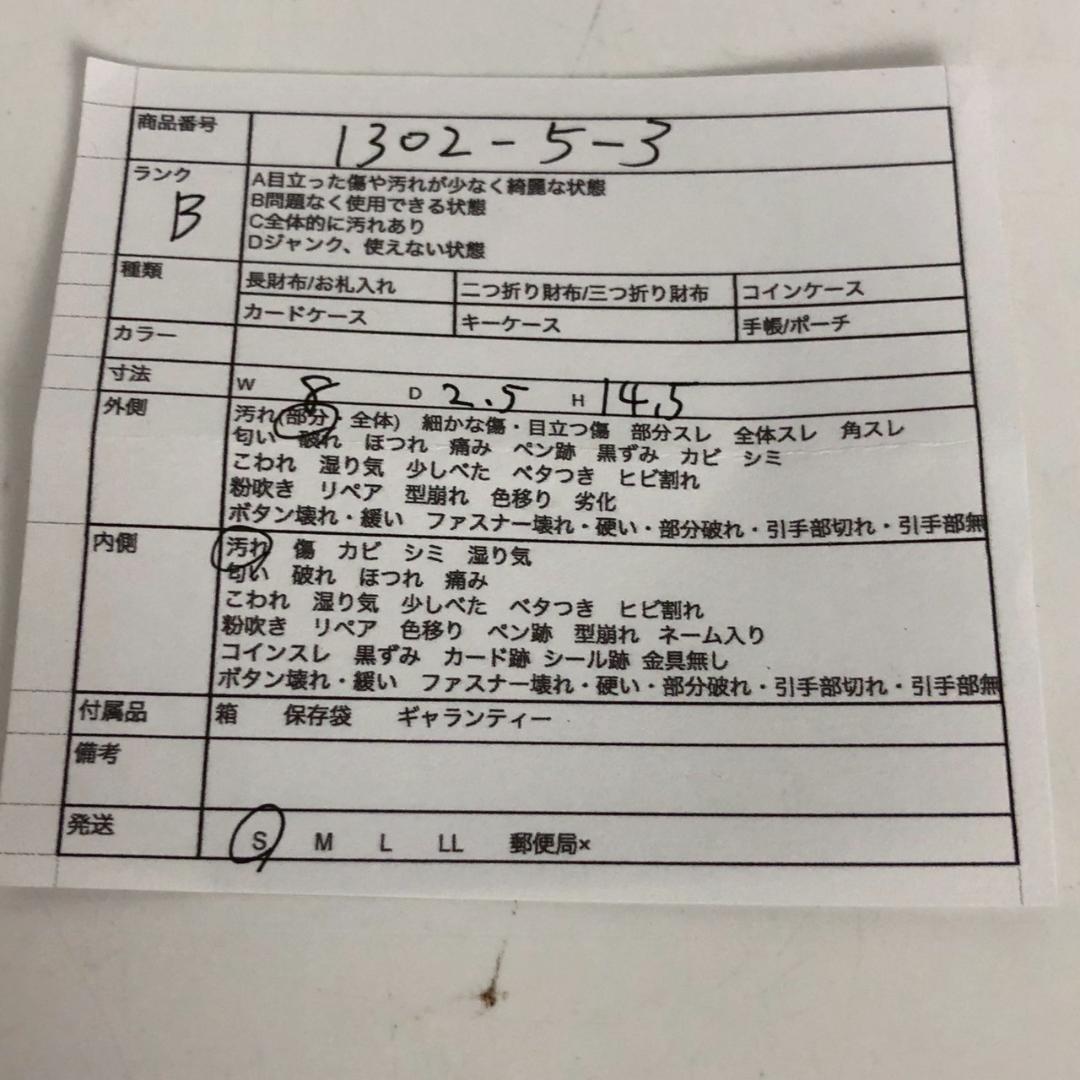 商品番号 1302-5-3
ランク B
A目立った傷や汚れが少なく綺麗な状態
B問題なく使用できる状態
C全体的に汚れあり
Dジャンク、使えない状態
種類
長財布/お札入れ 二つ折り財布/三つ折り財布 コインケース
カードケース キーケース 手帳/ポーチ
カラー
寸法 W 8 D 2.5 H 14.5
外側
汚れ(部分・全体) 細かな傷・目立つ傷 部分スレ 全体スレ 角スレ
匂い 破れ ほつれ 痛み ペン跡 黒ずみ カビ シミ
こわれ 湿り気 少しべた ベタつき ヒビ割れ
粉吹き リペア 型崩れ 色移り 劣化
ボタン壊れ・緩い ファスナー壊れ・硬い・部分破れ・引手部切れ・引手部無
内側
汚れ 傷 カビ シミ 湿り気
匂い 破れ ほつれ 痛み
こわれ 湿り気 少しべた ベタつき ヒビ割れ
粉吹き リペア 色移り ペン跡 型崩れ ネーム入り
コインスレ 黒ずみ カード跡 シール跡 金具無し
ボタン壊れ・緩い ファスナー壊れ・硬い・部分破れ・引手部切れ・引手部無
付属品 箱 保存袋 ギャランティー
備考
発送 S M L LL 郵便局×